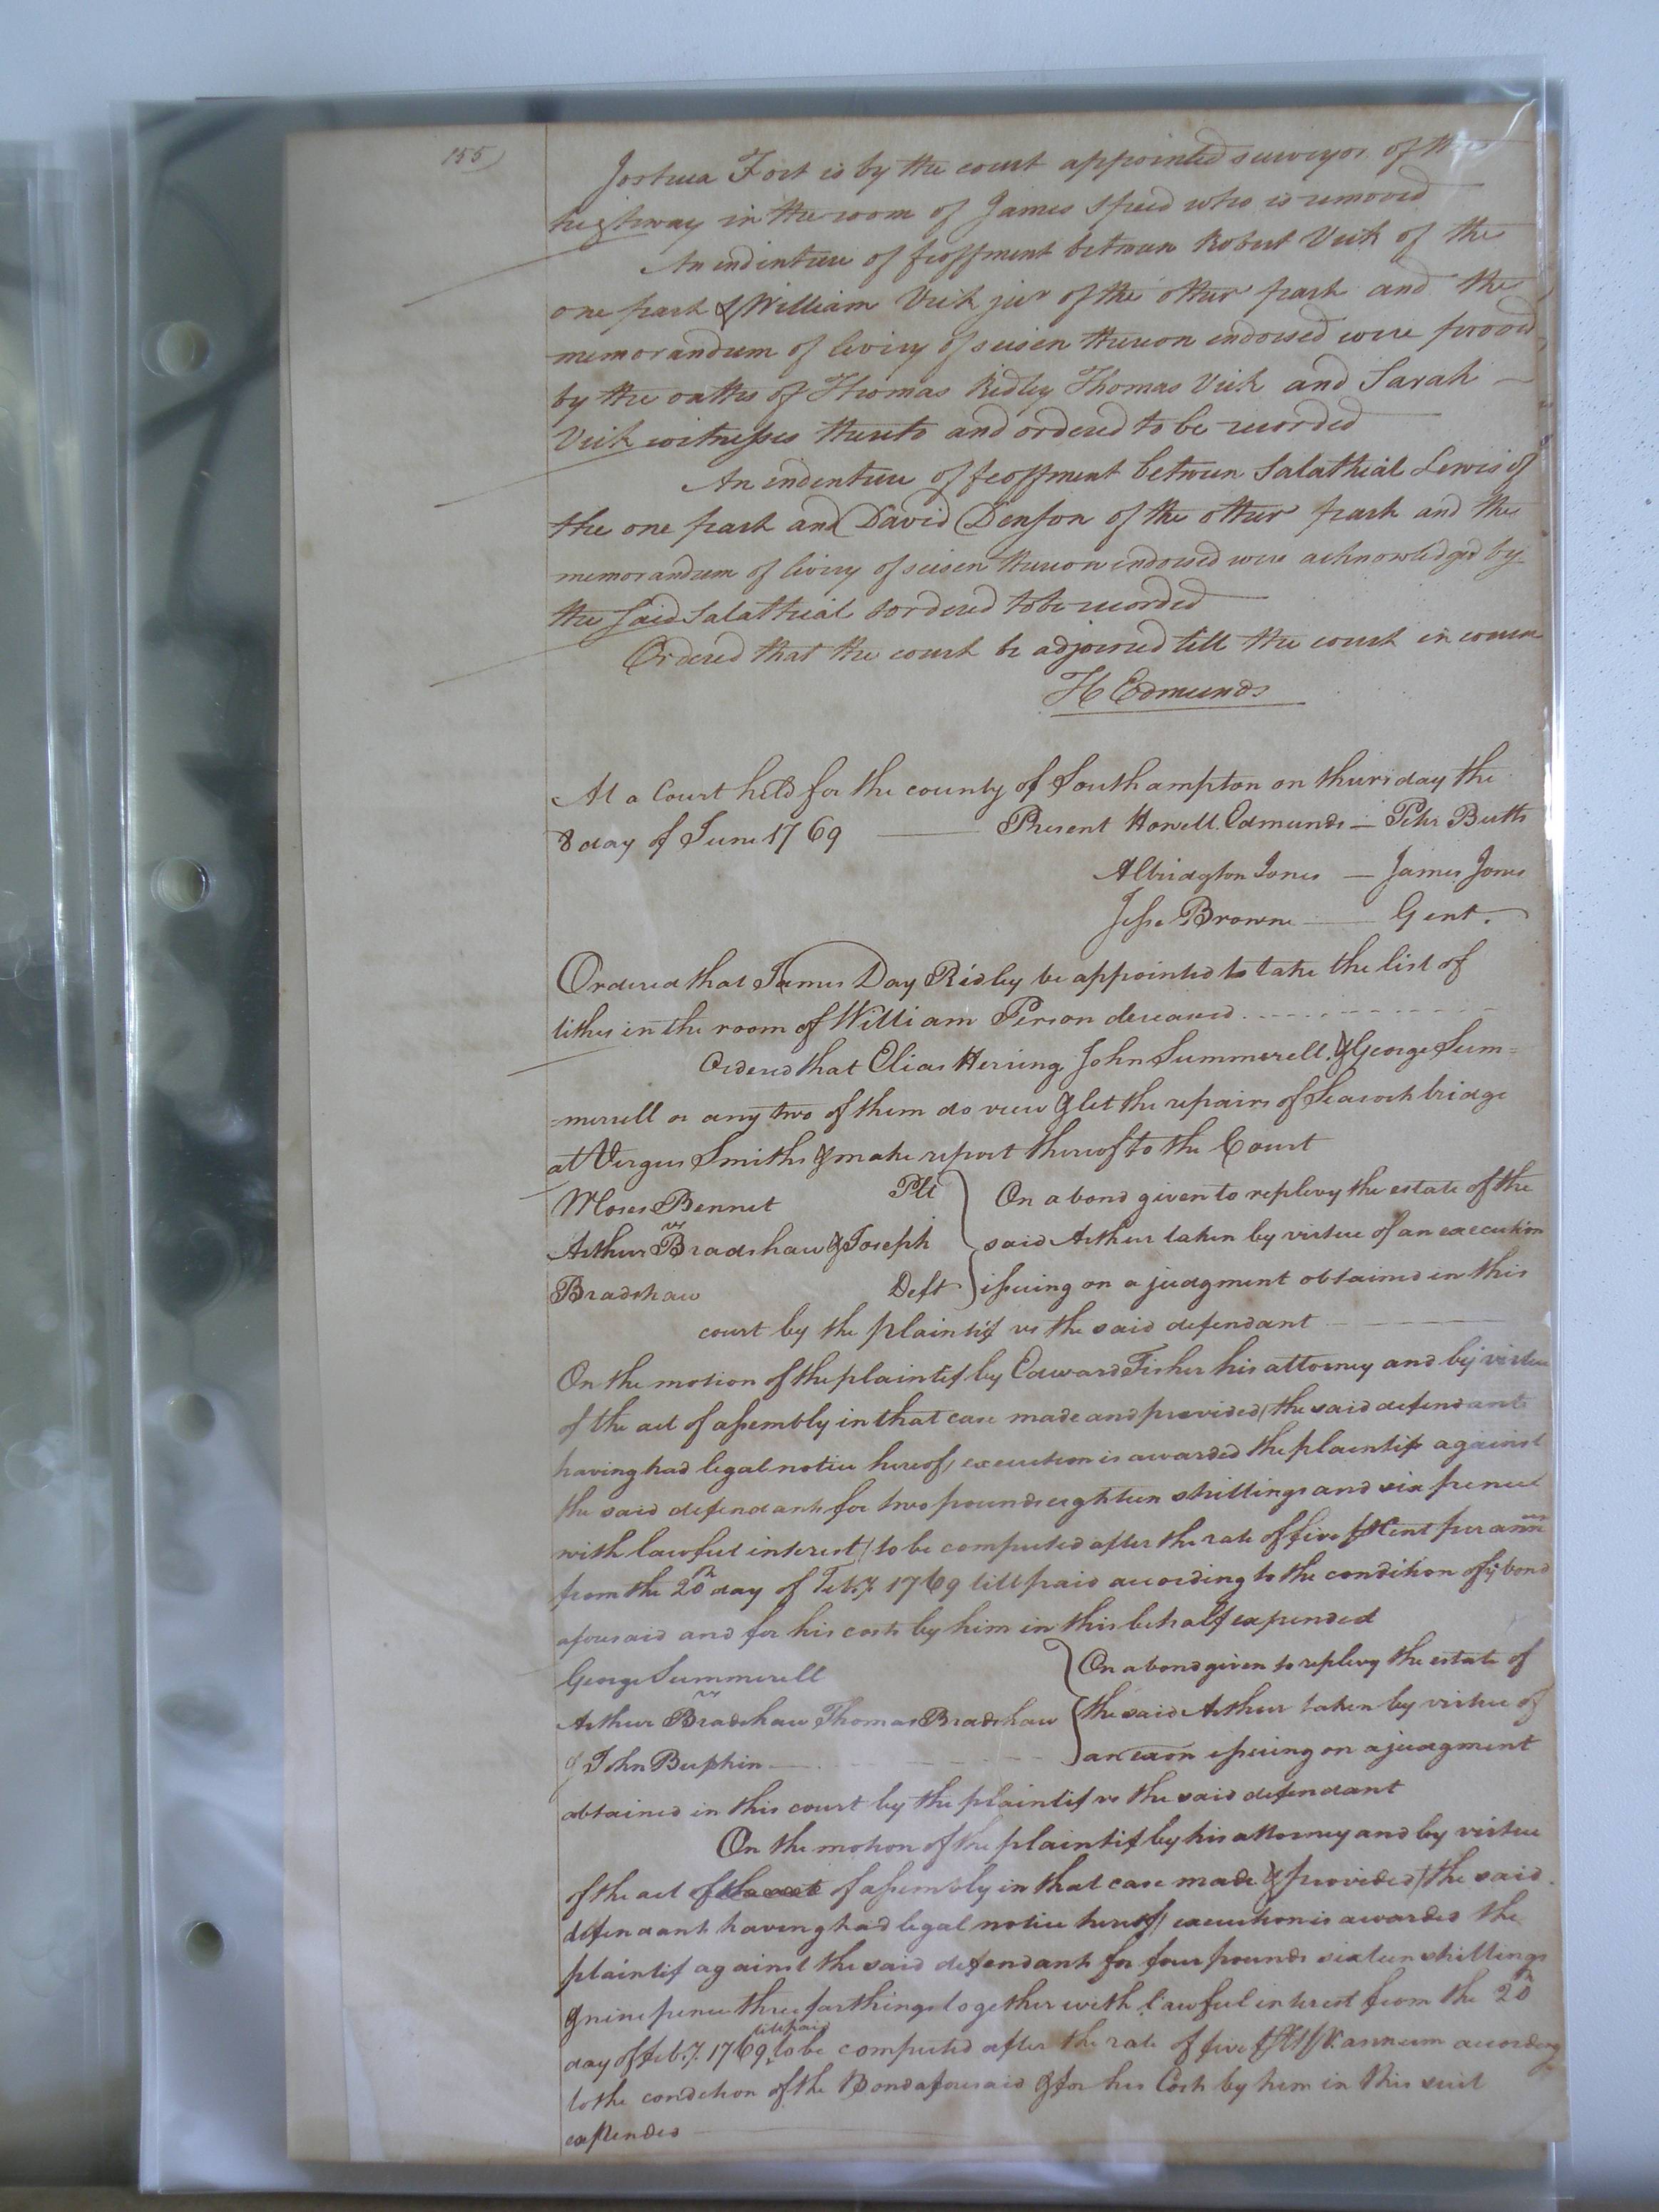 155)
Joshua Fort is by the court appointed surveyor of the
highway in the room of James Speed who is removed
An indenture of feoffment between Robert Vick of the
one part & William Vick jur of the other part and the
memorandum of livery of seisen thereon endorsed were proved
by the oaths of Thomas Ridley Thomas Vick and Sarah —
Vick witnesses thereto and ordered to be recorded
An indenture of feoffment between Salathial Lewis of
the one part and David Denson of the other part and the
memorandum of livery of seisen thereon endorsed were acknowledged by
the said Salathial & ordered to be recorded
Ordered that the court be adjorned till the court in course
H Edmunds
At a Court held for the county of Southampton on thursday the
8 day of June 1769 — Present Howell Edmunds — Peter Butts
Albridgton Jones — James Jones
Jesse Browne — Gent.
Ordered that James Day Ridley be appointed to take the list of
tithes in the room of William Person deceased
Ordered that Elias Herring John Summerell & George Sum=
=merell or any two of them do view & let the repairs of Seacock bridge
at Virgus Smiths & make report thereof to the Court
Moses Bennet Plt } On a bond given to replevy the estate of the
vs
Arthur Bradshaw & Joseph } said Arthur taken by virtue of an execution
Bradshaw Deft } issuing on a judgment obtained in this
court by the plaintif vs the said defendant
On the motion of the plaintif by Edward Fisher his attorney and by virtue
of the act of assembly in that case made and provided (the said defendants
having had legal notice hereof) execution is awarded the plaintif against
the said defendants for two pounds eighteen shillings and six pence
with lawful interest (to be computed after the rate of five p Cent per ann
from the 20th day of Feb.y 1769 till paid according to the condition of ye bond
aforesaid and for his costs by him in this behalf expended
George Summerell } On a bond given to replevy the estate of
vs
Arthur Bradshaw Thomas Bradshaw } the said Arthur taken by virtue of
& John Bupkin — } an exon issuing on a judgment
obtained in this court by the plaintif vs the said defendant
On the motion of the plaintif by his attorney and by virtue
of the act of assembly in that case made & provided (the said
defendants having had legal notice hereof) execution is awarded the
plaintif against the said defendants for four pounds sixteen shillings
& nine pence three farthings together with lawful interest from the 20th
day of feb.y 1769 till paid to be computed after the rate of five p Ct p annum according
to the condition of the Bond aforesaid & for his Costs by him in this suit
expended